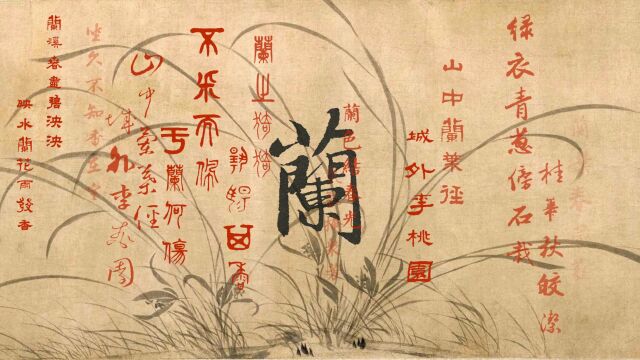 桂華秋皎潔
綠衣青葱傍石栽
山中蘭葉徑
城外李桃園
蘭色結春光
蘭
蘭之猗猗
揚揚其香
不采而佩
于蘭何傷
山中蘭葉徑
城外李桃園
坐久不知香在室
蘭溪春盡碧泱泱
映水蘭花雨發香